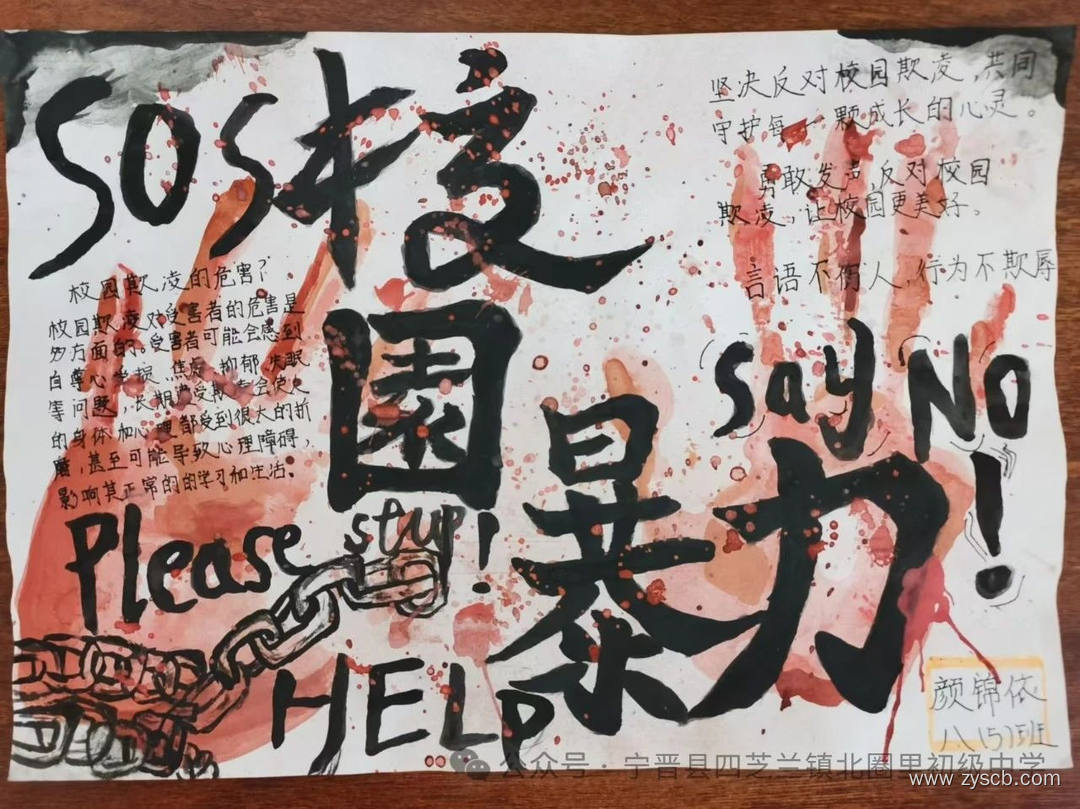 SOS校
園
暴力
坚决反对校园欺凌,共同
守护每一颗成长的心灵。
勇敢发声反对校园
欺凌,让校园更美好。
言语不伤人,行为不欺辱
say NO!
校园欺凌的危害?
校园欺凌对受害者的危害是
多方面的。受害者可能会感到
自尊心受损、焦虑、抑郁、失眠
等问题,长期遭受欺凌会使
的身体和心理都受到很大的折
磨,甚至可能导致心理障碍,
影响其正常的的学习和生活。
Please stop!
HELP
颜锦依
八157班
公众号·宁晋县四芝兰镇北圈里初级中学
www.zyscb.com